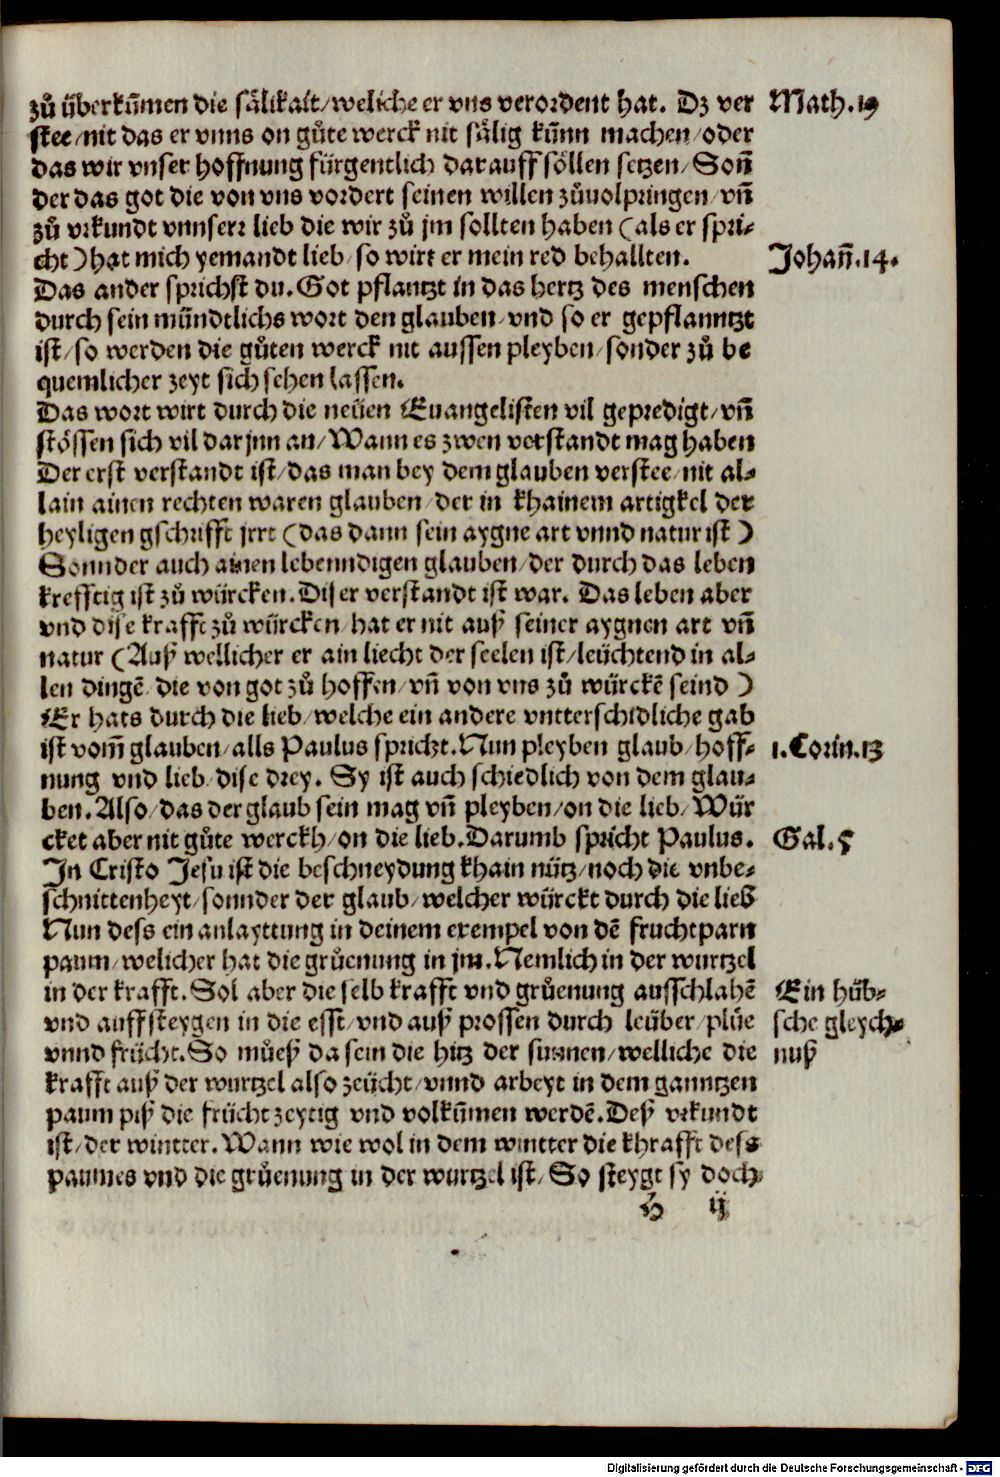 zů überkũmen die sälikait/weliche er vns verordent hat. Dz ver Math.19
stee/nit das er vnns on gůte werck nit sälig kũnn machen/oder
das wir vnser hoffnung fürgentlich darauff söllen setzen/Soñ
der das got die von vns vordert seinen willen zůuolpringen/vñ
zů vrkundt vnnserr lieb die wir zů jm sollten haben (als er spri⸗
cht) hat mich yemandt lieb/so wirt er mein red behallten. Johañ.14.
Das ander sprichst du. Got pflantzt in das hertz des menschen
durch sein mündtlichs wort den glauben/vnd so er gepflanntzt
ist/so werden die gůten werck nit aussen pleyben/sonder zů be
quemlicher zeyt sich sehen lassen.
Das wort wirt durch die neüen Euangelisten vil gepredigt/vñ
stössen sich vil darjnn an/Wann es zwen verstandt mag haben
Der erst verstandt ist/das man bey dem glauben verstee/nit al⸗
lain ainen rechten waren glauben/der in khainem artigkel der
heyligen gschrifft jrrt (das dann sein aygne art vnnd natur ist)
Sonnder auch ainen lebenndigen glauben/der durch das leben
krefftig ist zů würcken. Diser verstandt ist war. Das leben aber
vnd dise krafft zů würcken/hat er nit auß seiner aygnen art vñ
natur (Auß wellicher er ain liecht der seelen ist/leüchtend in al⸗
len dingẽ/die von got zů hoffen/vñ von vns zů würckẽ seind)
Er hats durch die lieb/welche ein andere vntterschidliche gab
ist vom̃ glauben/alls Paulus spricht. Nun pleyben glaub/hoff⸗ 1.Corin.13
nung vnd lieb/dise drey. Sy ist auch schiedlich von dem glau⸗
ben. Also/das der glaub sein mag vñ pleyben/on die lieb/Wür
cket aber nit gůte werckh/on die lieb. Darumb spricht Paulus. Gal.5
In Cristo Jesu ist die beschneydung khain nütz/noch die vnbe⸗
schnittenheyt/sonnder der glaub/welcher würckt durch die lieb
Nun dess ein anlayttung in deinem exempel von dẽ fruchtparn
paum/welicher hat die grůenung in jm. Nemlich in der wurtzel
in der krafft. Sol aber die selb krafft vnd grůenung ausschlahẽ Ein hüb⸗
vnd auffsteygen in die esst/vnd auß prossen durch leüber/plüe sche gleych⸗
vnnd frücht. So můeß da sein die hitz der sunnen/welliche die nuß
krafft auß der wurtzel also zeücht/vnnd arbeyt in dem ganntzen
paum piß die frücht zeytig vnd volkũmen werdẽ. Deß vrkundt
ist/der wintter. Wann wie wol in dem wintter die khrafft dess
paumes vnd die grůenung in der wurtzel ist/So steygt sy doch
ij
Digitalisierung gefördert durch die Deutsche Forschungsgemeinschaft - DFG